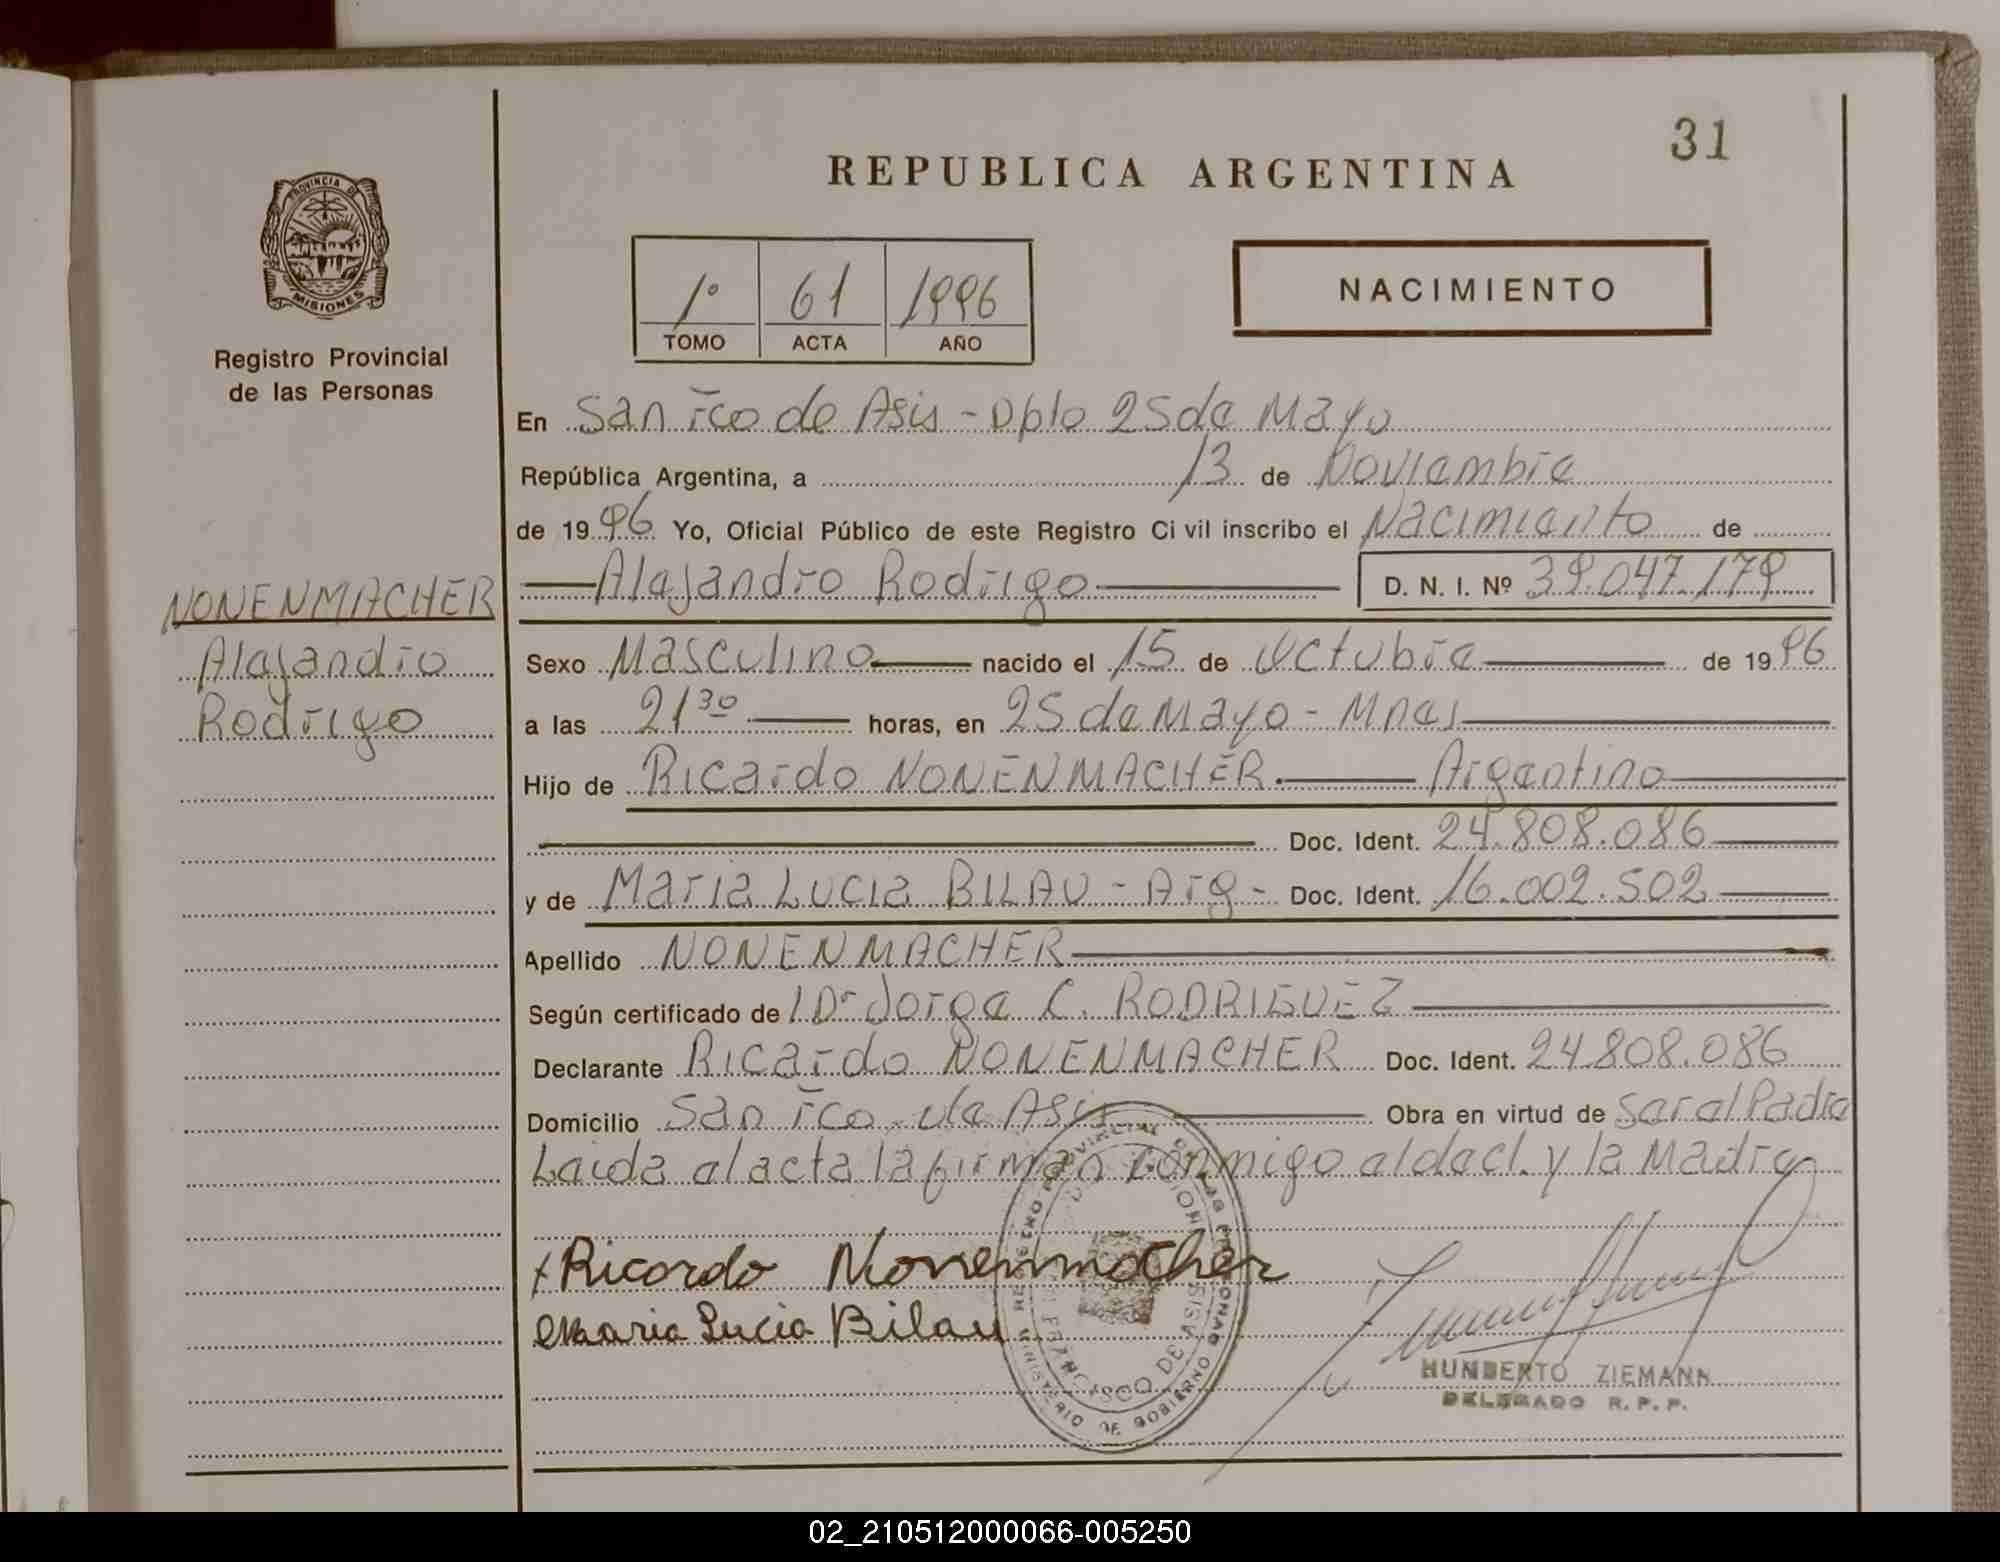 31
REPUBLICA ARGENTINA
PROVINCIA DE
MISIONES
Registro Provincial
de las Personas
1º 61 1996
TOMO ACTA AÑO
NACIMIENTO
En San Fco de Asis - Dpto 25 de Mayo
República Argentina, a 13 de Noviembre
de 1996 Yo, Oficial Público de este Registro Civil inscribo el Nacimiento de
Alejandro Rodrigo D. N. I. Nº 39.047.179
NONENMACHER
Alejandro
Rodrigo
Sexo Masculino nacido el 15 de Octubre de 1996
a las 21 30 horas, en 25 de Mayo - Mnes
Hijo de Ricardo NONENMACHER. Argentino
Doc. Ident. 24.808.086
y de Maria Lucia BILAU - Arg - Doc. Ident. 16.002.502
Apellido NONENMACHER
Según certificado de Dr Jorge C. RODRIGUEZ
Declarante Ricardo NONENMACHER Doc. Ident. 24.808.086
Domicilio San Fco. de Asis Obra en virtud de Ser el Padre
Leida el acta la firman conmigo el decl. y la Madre
x Ricardo Nonenmacher
Maria Lucia Bilau
REGISTRO PROVINCIAL DE LAS PERSONAS
MINISTERIO DE GOBIERNO
FRANCISCO DE ASIS
HUNBERTO ZIEMANN
DELEGADO R. P. P.
02_210512000066-005250